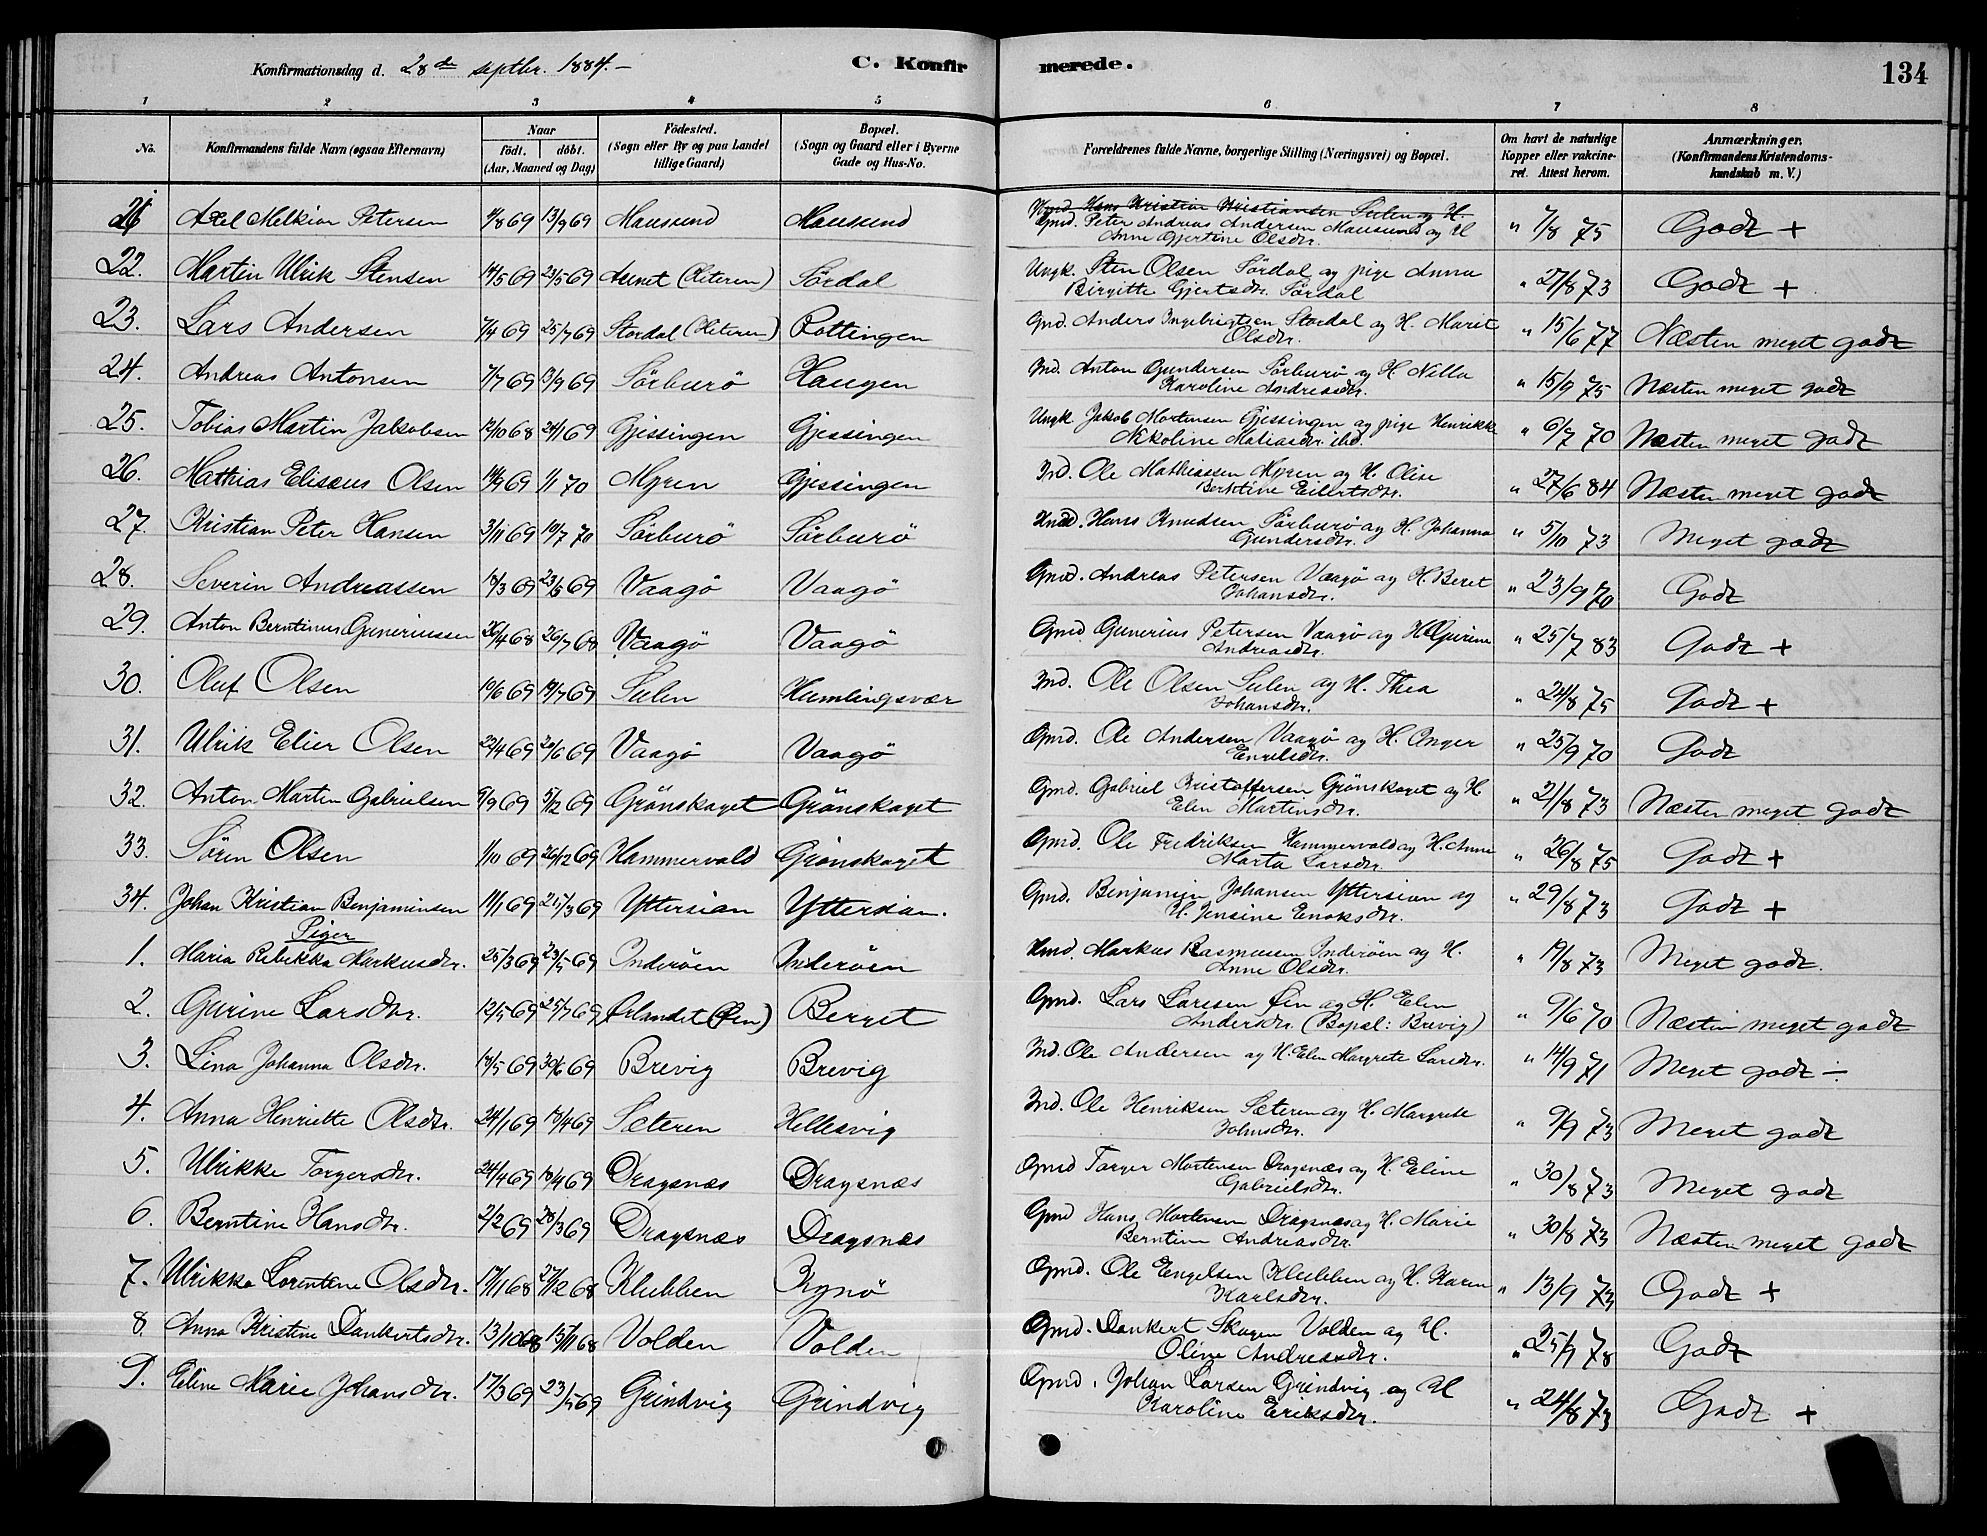 Konfirmationsdag d. 28de septbr. 1884.-
C. Konfirmerede.
134
1 2 3 4 5 6 7 8
No. Konfirmandens fulde Navn (ogsaa Efternavn) Naar födt. döbt. (Aar, Maaned og Dag) Födested. (Sogn eller By og paa Landet tillige Gaard) Bopæl. (Sogn og Gaard eller i Byerne Gade og Hus-No. Forældrenes fulde Navne, borgerlige Stilling (Næringsvei) og Bopæl. Om havt de naturlige Kopper eller vakcineret. Attest herom. Anmærkninger. (Konfirmandens Kristendomskundskab m. V.)
Axel Melkior Petersen 13/9 69 Mausund Mausund Gmd. Peter Andreas Andersen Mausund og H Anne Gjertine Olsdr. " 7/8 75 Godt +
22. Martin Ulrik Stensen 23/5 69 (Hiteren) Sördal Ungk. Sten Olsen Sördal og pige Anna Birgitte Gjertsdr. Sördal " 27/8 73 Godt +
23. Lars Andersen 7/4 69 25/7 69 Stordal (Hiteren) Rottingen Gmd. Anders Ingebrigtsen Stordal og H. Marit Olsdr. " 15/6 77 Næsten meget godt
24. Andreas Antonsen 7/7 69 13/9 69 Sörburö Haugen Ind. Anton Gundersen Sörburö og H. Nilla Karoline Andreasdr. " 15/9 75 Næsten meget godt
25. Tobias Martin Jakobsen 12/10 68 24/1 69 Gjessingen Gjessingen Ungk. Jakob Mortensen Gjessingen og pige Henrikke Nekoline Matiasdr. ibd. " 6/7 70 Næsten meget godt
26. Mathias Elisæus Olsen 14/9 69 1/1 70 Myren Gjessingen Ind. Ole Mathiassen Myren og H. Olise Berntine Eilertsdr. " 27/6 84 Næsten meget godt
27. Kristian Peter Hansen 3/11 69 10/7 70 Sörburö Sörburö Hans Knudsen Sörburö og H. Johanna Gundersdr. " 5/10 73 Meget godt
28. Severin Andreassen 18/3 69 23/5 69 Vaagö Vaagö Gmd. Andreas Petersen Vaagö og H. Beret Johansdr. " 23/9 70 Godt
29. Anton Berntinus Guneriussen 26/4 68 26/7 68 Vaagö Vaagö Gmd Gunerius Petersen Vaagö og H. Gurine Andreasdr. " 25/7 83 Godt +
30. Oluf Olsen 10/6 69 19/7 69 Sulen Humlingsvær Ind. Ole Olsen Sulen og H. Thea Johansdr. " 24/8 75 Godt +
31. Ulrik Elier Olsen 22/4 69 20/6 69 Vaagö Vaagö Gmd. Ole Andersen Vaagö og H. Inger " 25/9 70 Godt
32. Anton Martin Gabrielsen 9/9 69 5/12 69 Grönskaget Grönskaget Gmd. Gabriel Kristoffersen Grönskaget og H. Elen Martinsdr. " 21/8 73 Næsten meget godt
33. Sören Olsen 1/10 69 26/12 69 Hammervold Grönskaget Gmd. Ole Fredriksen Hammervold og H. Anne Marta Larsdr. " 26/8 75 Godt +
34. Johan Kristian Benjaminsen 11/1 69 25/3 69 Yttersian Yttersian. Gmd. Benjamin Johansen Yttersian og H. Jensine Enoksdr. " 29/8 73 Godt +
Piger
1. Maria Rebekka Markusdr. 25/3 69 23/5 69 Inderöen Inderöen Markus Rasmussen Inderöen og H. Anne Olsdr. " 19/8 73 Meget godt.
2. Gurine Larsdr. 12/5 69 25/7 69 Ørlandet (Øen) Berget Gmd. Lars Larssen Øen og H. Elen Andersdr. (Bopæl: Brevig) " 9/6 70 Næsten meget godt
3. Lina Johanna Olsdr. 30/6 69 Brevig Brevig Ind. Ole Andersen og H. Elen Margrete Larsdr. " 14/9 71 Meget godt -
4. Anna Henriette Olsdr. 24/1 69 18/4 69 Sæteren Hellesvig Ind. Ole Henriksen Sæteren og H. Margrete Johnsdr. " 9/9 73 Meget godt
5. Ulrikke Torgersdr. 18/4 69 Dragsnæs Dragsnæs Gmd Torger Mortensen Dragsnæs og H. Eline Gabrielsdr. " 30/8 73 Meget godt
6. Berntine Hansdr. 2/2 69 28/3 69 Dragsnæs Dragsnæs Gmd Hans Mortensen Dragsnæs og H. Marie Berntine Andreasdr. " 30/8 73 Næsten meget godt
7. Ulrikke Lorentine Olsdr. 17/11 68 27/12 68 Klubben Gmd. Ole Engelsen Klubben og H. Karen Karlsdr. " 13/9 73 Godt +
8. Anna Kristine Dankertsdr. 13/10 68 15/11 68 Volden Volden Gmd. Dankert Skagen Volden og H. Oline Andreasdr. " 25/9 78 Godt
9. Eline Marie Johansdr. 17/3 69 23/5 69 Grindvig Grindvig Gmd. Johan Larsen Grindvig og H Karoline Eriksdr. " 24/8 73 Godt +